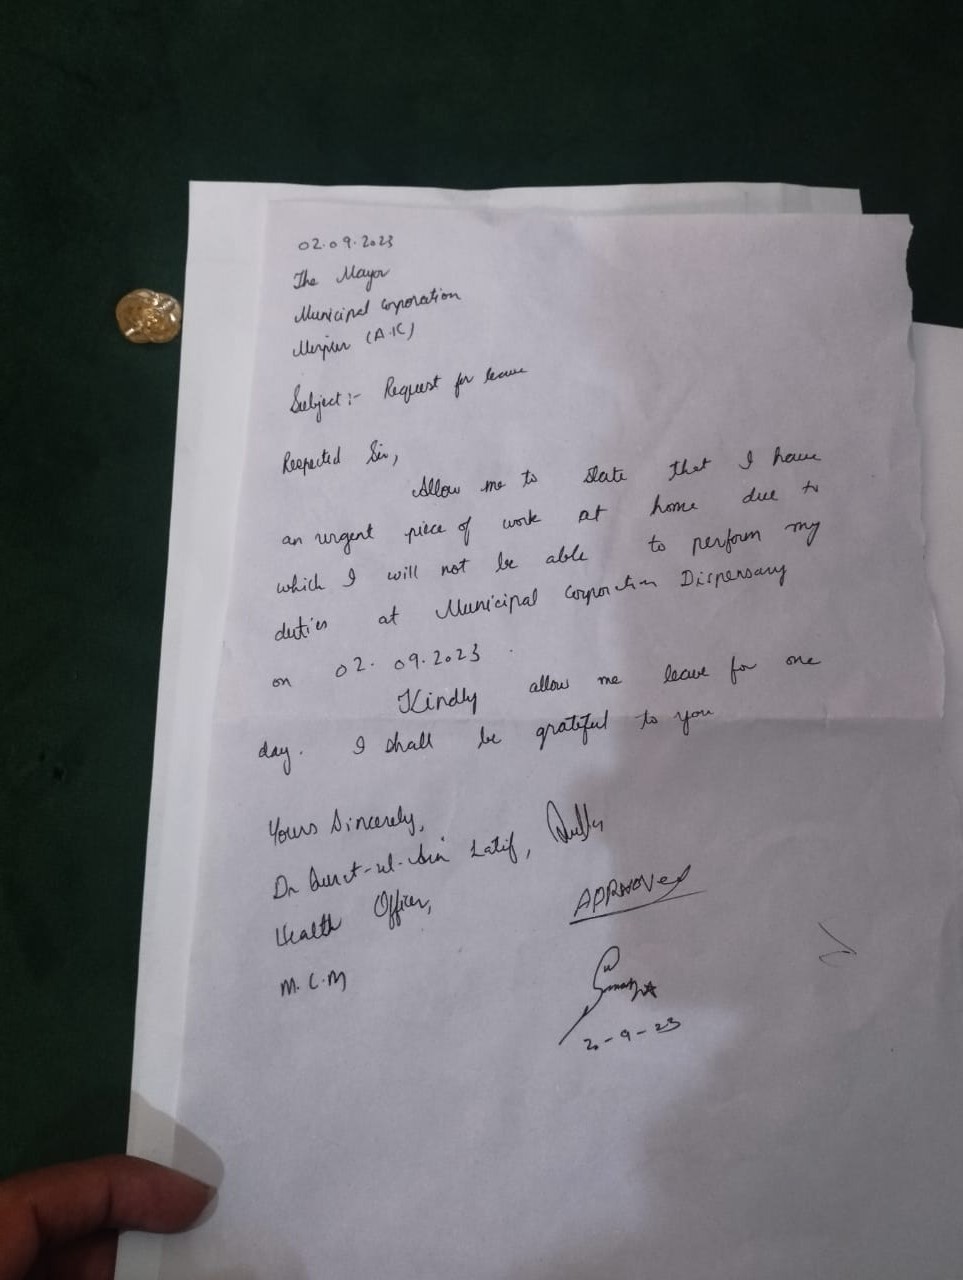 02.09.2023
The Mayor
Municipal Corporation
Mirpur (A.K)
Subject:- Request for leave
Respected Sir,
Allow me to state that I have
an urgent piece of work at home due to
which I will not be able to perform my
duties at Municipal Corporation Dispensary
on 02.09.2023.
Kindly allow me leave for one
day. I shall be grateful to you
Yours Sincerely,
Dr Qurat-ul-Ain Latif,
Health Officer,
M.C.M
APPROVED
2-9-23